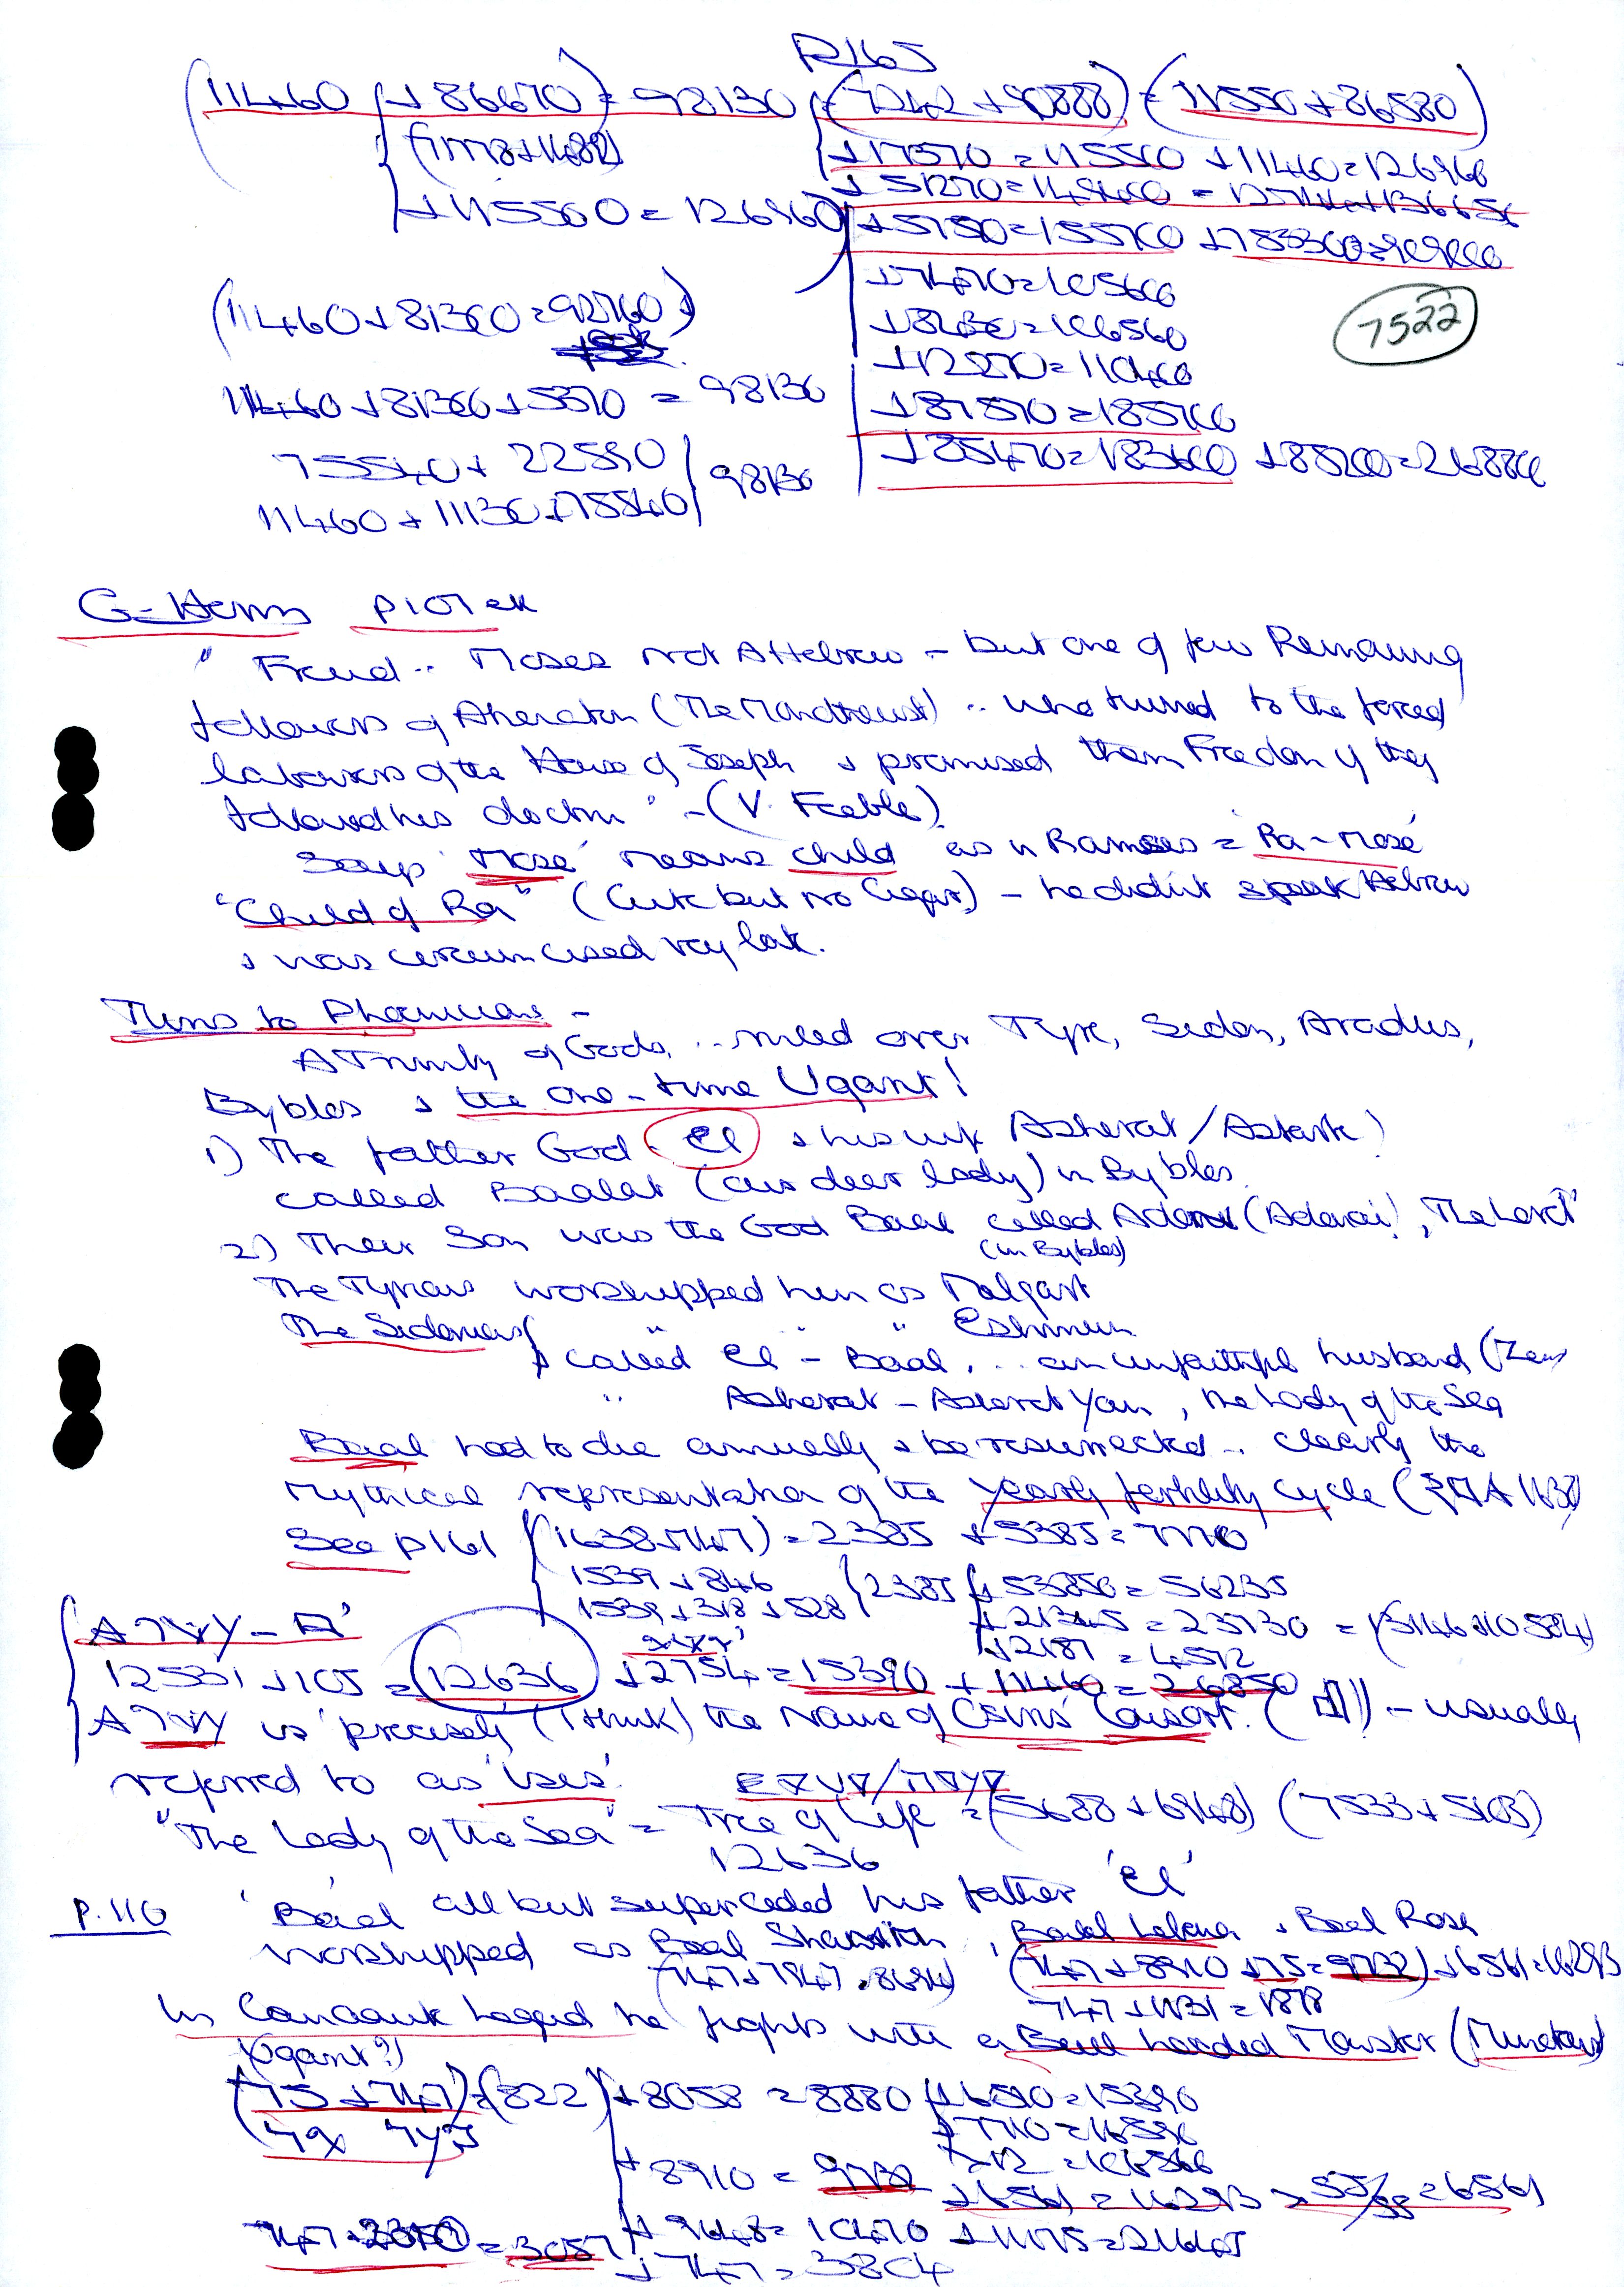 P165
(11460 + 86670) = 98130 = (7242 + 90888) = (11550 + 86580)
+17370 = 115500 + 11460 = 126960
+115500 = 126960
+51270 = 149400
+57570 = 155700
+7470 = 105600
(11460 + 81300 = 92760)
7522
+8430 = 106560
+12330 = 110460
11460 + 81300 + 5370 = 98130
+87570 = 185700
75540 + 22590
98130
+85470 = 183600
11460 + 11130 + 75540
G-Herm p107ek
"Freud .. Moses not a Hebrew - but one of few Remaining
followers of Akenaton (The Monotheist) .. who turned to the forced
labourers of the House of Joseph & promised them Freedom if they
followed his doctrin" - (V. Feeble)
Says 'Mose' means child as in Ramses = Ra-mose
"Child of Ra" (Cute but no Cigar) - he didnt speak Hebrew
& was circumcised very late.
Turns to Phoenicians -
A Trinity of Gods .. ruled over Tyre, Sidon, Aradus,
Byblos & the one-time Ugarit!
1) The father God El & his wife Asherat/Astarte)
called Baalat (our dear lady) in Byblos
2) Their Son was the God Baal called Adon (Adonai!, The Lord'
(in Byblos)
The Tyrians worshipped him as Malqart
The Sidonians " " " Eshmun
& called El - Baal, .. an unfaithful husband (Zeus
" Asherat - Asherat Yam, the Lady of the Sea
Baal had to die annually & be resurrected .. clearly the
mythical representation of the yearly fertility cycle
See p161 (1638+747) = 2385 + 5385 = 7770
1539 + 846
1539 + 318 + 528
2385 + 53850 = 56235
+21345 = 23730 = (13146 + 10584)
+2187 = 4572
12531 + 105 = 12636 + 2754 = 15390 + 11460 = 26850
is 'precisely (I think) the Name of Osiris' Consort. - usually
referred to as 'Isis'.
"The Lady of the Sea" = Tree of Life = (5688 + 6948) (7533 + 5103)
12636
P.110 'Baal' all but superceded his father 'El'
worshipped as Baal Shamin, Baal Lebanon & Baal Rosh
(747 + 7947 = 8694) (747 + 8910 + 75 = 9732) + 6561 = 16293
747 + 1131 = 1878
In Canaanite legend he fights with a Bull headed Monster (Minotaur)
(Ugarit?)
(75 + 747) = (822) + 8058 = 8880 + 6510 = 15390
+7710 = 16590
+8910 = 9732
+6561 = 16293
= 6561
+9648 = 10470 + 11175 = 21645
= 3057
+747 = 3804